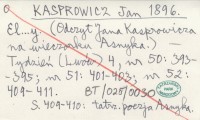 0 KASPROWICZ Jan 1896.
El...y. (Odczyt Jana Kasprowicza
na wieczorku Asnyka.) —
Tydzień (Lwów) 4, nr 50: 393-
-395; nr 51: 401-403; nr 52:
409-411. BT/025/0030
S. 409-410: tatrz. poezja Asnyka.